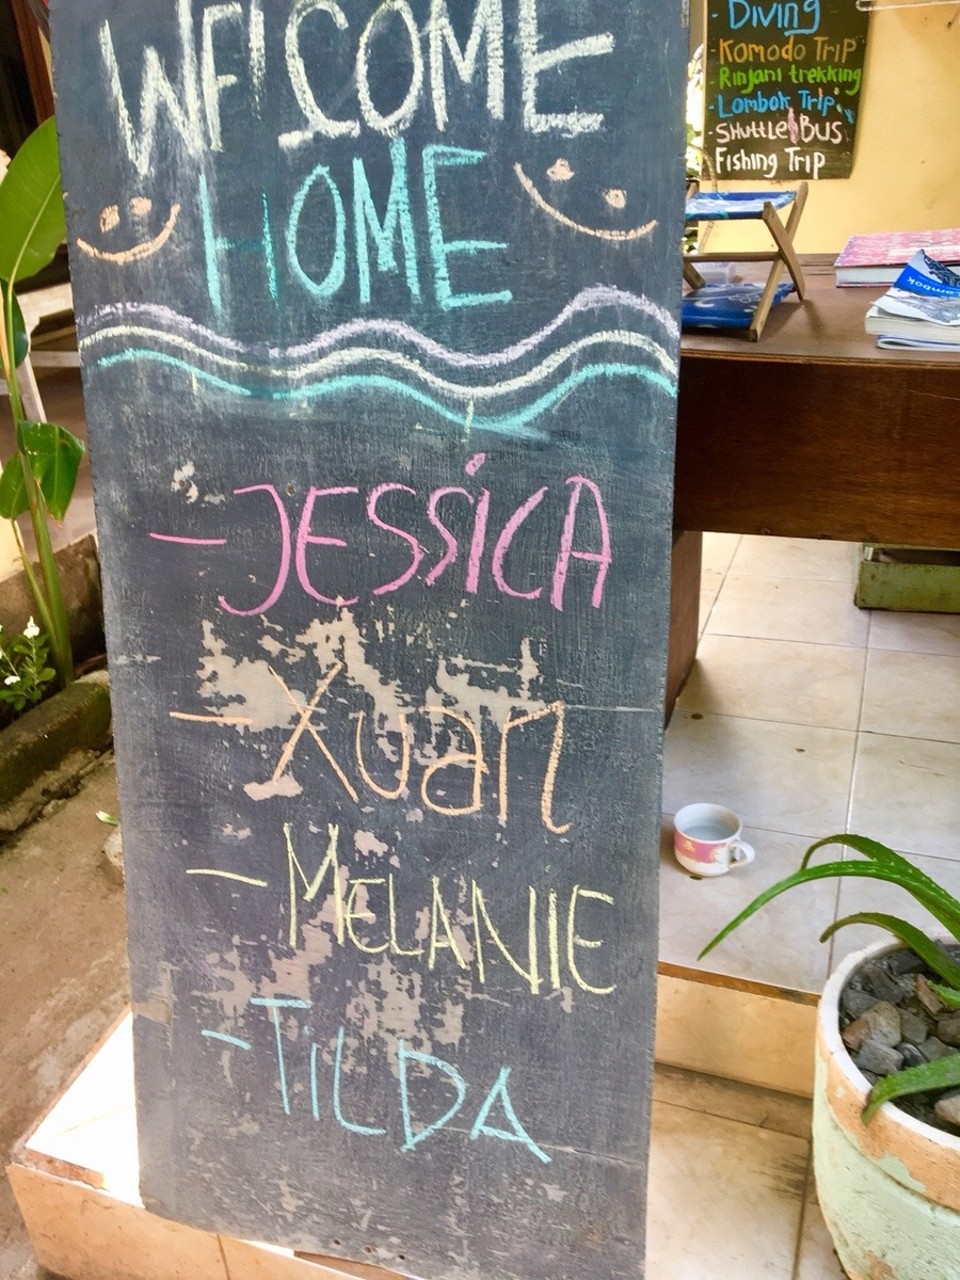 WELCOME
HOME
-JESSiCA
-Xuan
-MELANIE
-TiLDA
- Diving
- Komodo TRiP
- Rinjani trekking
- Lombok Trip
- SHUTTLE BUS
Fishing Trip
Lombok